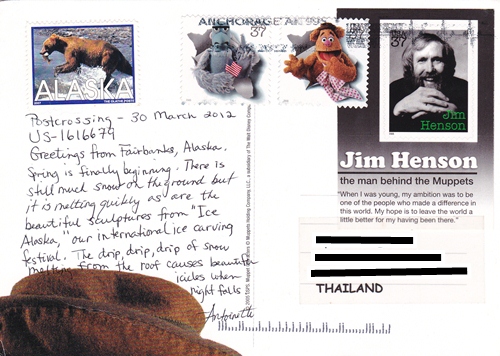 ANCHORAGE AK 995
37
37
37
ALASKA
Jim
Henson
Postcrossing - 30 March 2012
US-1616679
Greetings from Fairbanks, Alaska.
Spring is finally beginning. There is
still much snow on the ground but
it is melting quickly as are the
beautiful sculptures from "Ice
Alaska," our international ice carving
festival. The drip, drip, drip of snow
melting from the roof causes beautiful
icicles when
night falls
Antoinette
Jim Henson
the man behind the Muppets
"When I was young, my ambition was to
be one of the people who made a difference in
this world. My hope is to leave the world a
little better for my having been there."
THAILAND